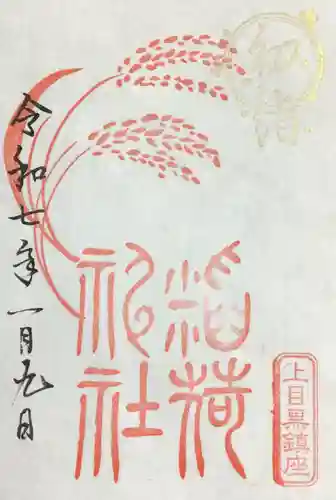 上目黒鎮座
稲荷
神社
令和七年一月九日